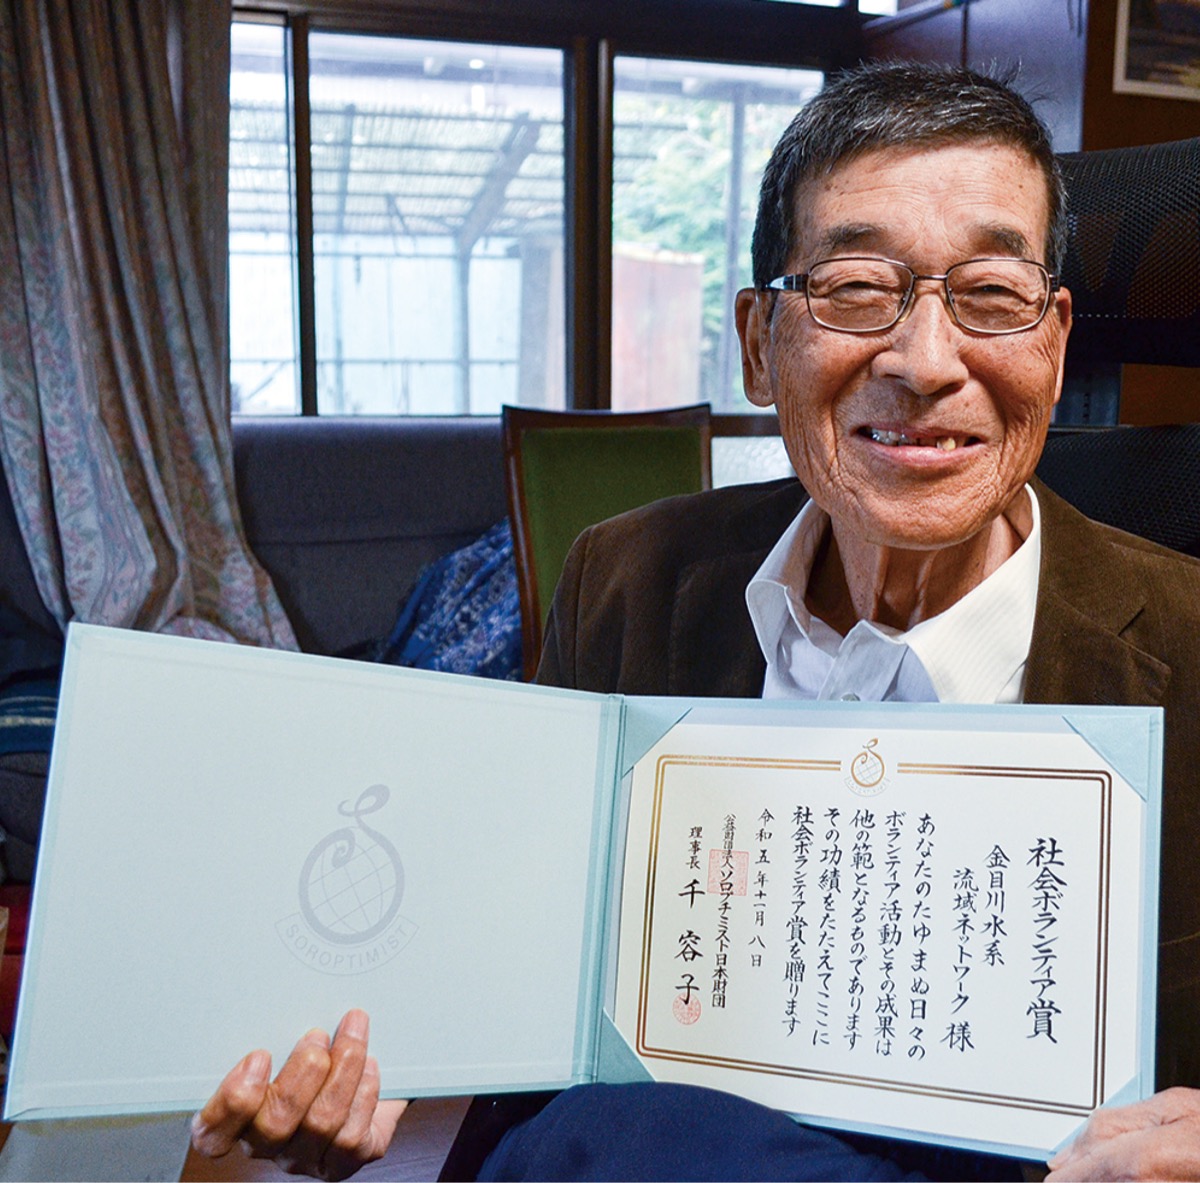 SOROPTIMIST
社会ボランティア賞
金目川水系
流域ネットワーク 様
あなたのたゆまぬ日々の
ボランティア活動とその成果は
他の範となるものであります
その功績をたたえてここに
社会ボランティア賞を贈ります
令和五年十一月八日
公益財団法人ソロプチミスト日本財団
理事長 千 容子